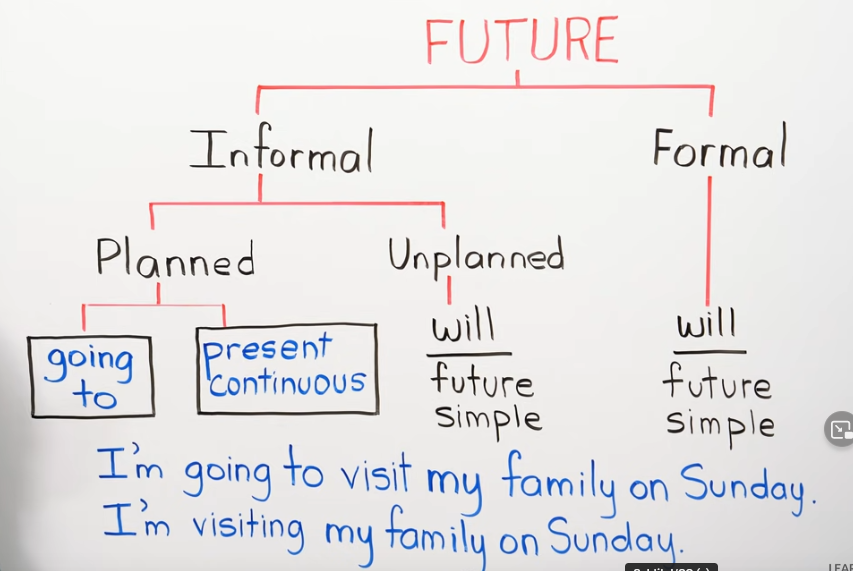 FUTURE
Informal
Formal
Planned
Unplanned
going
to
present
continuous
will
future
simple
will
future
simple
I'm going to visit my family on Sunday.
I'm visiting my family on Sunday.
LEAR